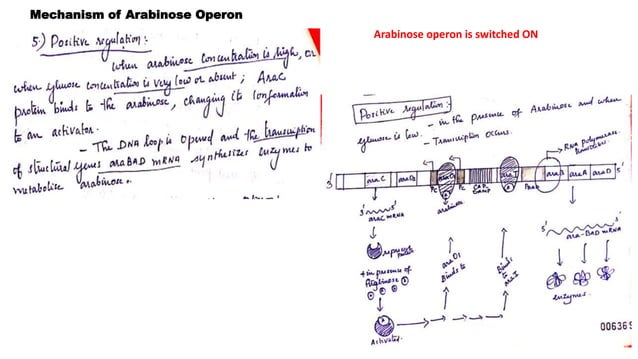 Mechanism of Arabinose Operon
5.) Positive regulation :
when arabinose concentration is high, or
when glucose concentration is very low or absent ; AraC
protein binds to the arabinose, changing its conformation
to an activator.
- The DNA loop is opened and the transcription
of structural genes araBAD mRNA synthesizes enzymes to
metabolize arabinose.
Arabinose operon is switched ON
Positive regulation :-
- in the presence of Arabinose and when
glucose is low.
- Transcription occurs.
RNA Polymerase
3' araC araO2 araO1 PC CAP araI PBAD araB araA araD 5'
arabinose
3' 5'
araC mRNA
5' 3'
ara-BAD mRNA
repressor
+ in presence of
Arabinose
araO1
Binds to
Binds
to
araI
enzymes.
Activator.
00636